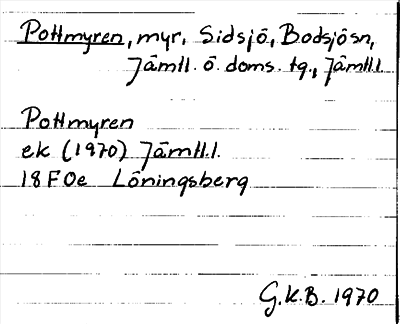 Pottmyren, myr, Sidsjö, Bodsjösn,
Jämtl. ö. doms. tg., Jämtl.l.
Pottmyren
ek (1970) Jämtl.l.
18F0e Löningsberg
G.K.B. 1970